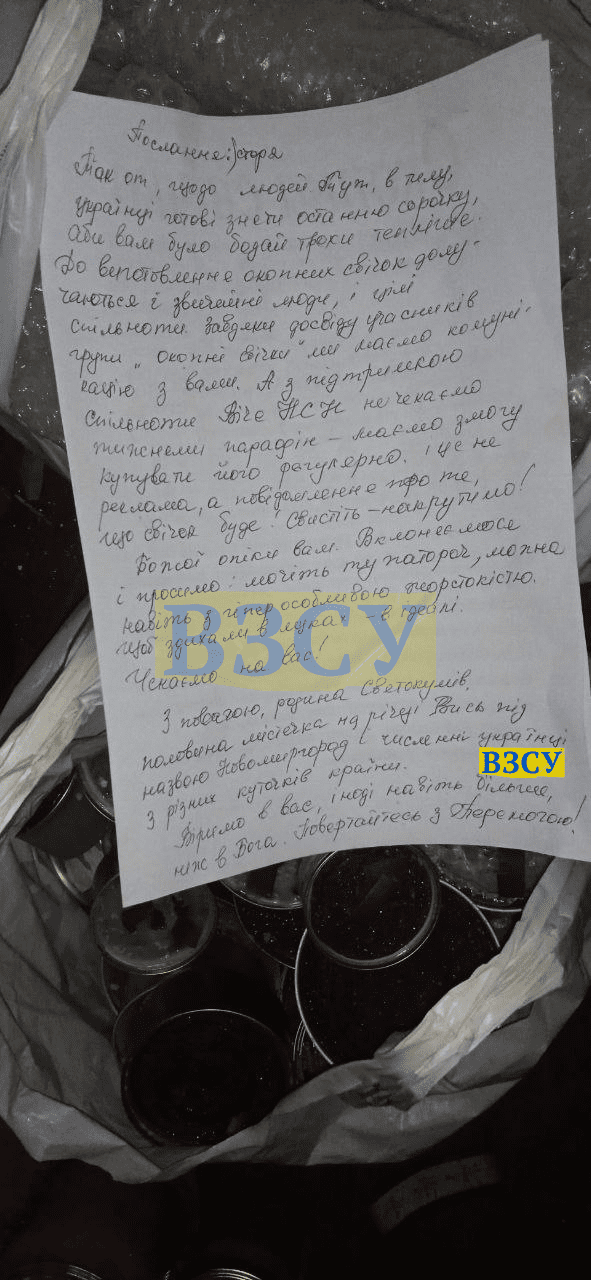 Послання:) сторя
Так от, щодо людей. Тут, в тилу,
українці готові зняти останню сорочку,
аби вам було бодай трохи тепліше.
До виготовлення окопних свічок долу-
чаються і звичайні люди, і цілі
спільноти. Завдяки досвіду учасників
групи „окопні свічки" ми маємо комуні-
кацію з вами. А з підтримкою
спільноти Віче НСН не чекаємо
тижнями парафін – маємо змогу
купувати його регулярно. І це не
реклама, а повідомлення про те,
що свічок буде! Свистіть – накрутимо!
Божої опіки вам. Вклоняємося
і просимо: мочіть ту потороч, можна
навіть з гіпер особливою жорстокістю.
Щоб здихали в муках – в ідеалі.
Чекаємо на вас!
ВЗСУ
З повагою, родина Светокумів,
половина містечка на річці Вись під
назвою Новомиргород і численні українці
з різних куточків країни.
ВЗСУ
Віримо в вас, іноді навіть більше,
ніж в Бога. Повертайтесь з Перемогою!